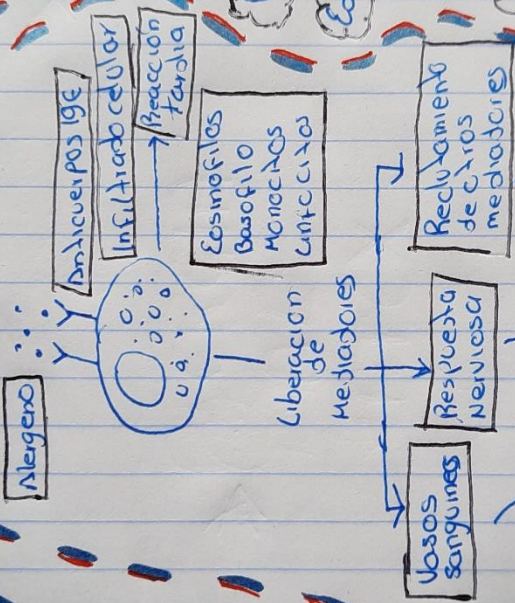 Alergeno
Anticuerpos IgE
Infiltrado celular
Reacción
tardia
Eosinofilos
Basofilo
Monocitos
Linfocitos
Liberacion
de
Mediadores
Vasos
Sanguines
Respuesta
Nerviosa
Reclutamiento
de otros
mediadores